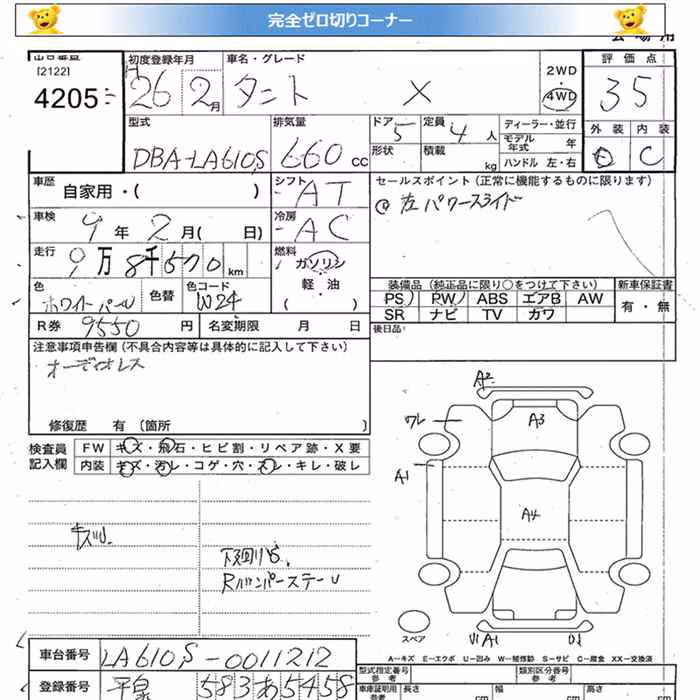 完全ゼロ切りコーナー
[2122]
4205
初度登録年月
H26 2月
車名・グレード
タント X
2WD
4WD
評価点
35
外装 内装
C
型式
DBA-LA610S
排気量
660 cc
ドア 5
定員 4 人
形状
積載 kg
ディーラー・並行
モデル年式 年
ハンドル 左・右
車歴
自家用・( )
シフト
AT
セールスポイント(正常に機能するものに限ります)
左パワースライド
車検
9年 2月( 日)
冷房
AC
走行
9万8千570km
燃料
ガソリン
軽・油
( )
色
ホワイトパール
色替
色コード
W24
装備品(純正品に限り○をつけて下さい)
PS PW ABS エアB AW
SR ナビ TV ガワ
新車保証書
有・無
R券 9550 円
名変期限 月 日
後日品:
注意事項申告欄(不具合内容等は具体的に記入して下さい)
オーディオレス
修復歴 有 〔箇所 〕
検査員
記入欄
FW キズ・飛石・ヒビ割・リペア跡・X要
内装 キズ・汚レ・コゲ・穴・スレ・キレ・破レ
下廻りS.
RバンパーステーU
A2
ワレ
A3
A1
A4
スペア
U1 A1
A-キズ E-エクボ U-凹み W-補修跡 S-サビ C-腐食 XX-交換済
車台番号
LA610S-0011212
登録番号
平泉 583 あ 5458
型式指定番号
参考
類別区分番号
参考
車庫証明用
参考
長さ cm
幅 cm
高さ cm